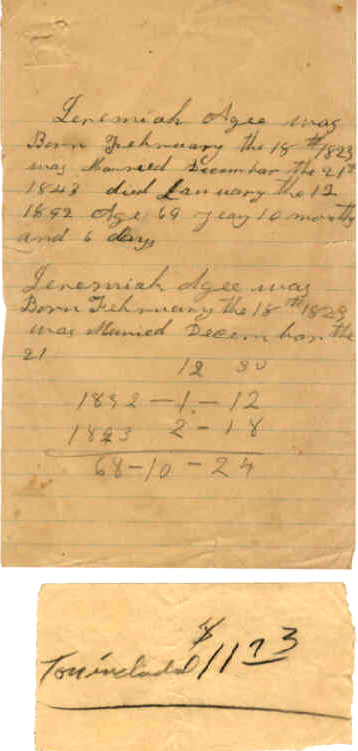 Jeremiah Agee was
Born February the 18th 1823
was Married December the 21st
1843 died January the 12
1892 Age 69 year 10 months
and 6 days
Jeremiah Agee was
Born February the 18th 1823
was Maried Decem bar the
21
12 30
1892 - 1 - 12
1823 2 - 18
68 - 10 - 24
$1123